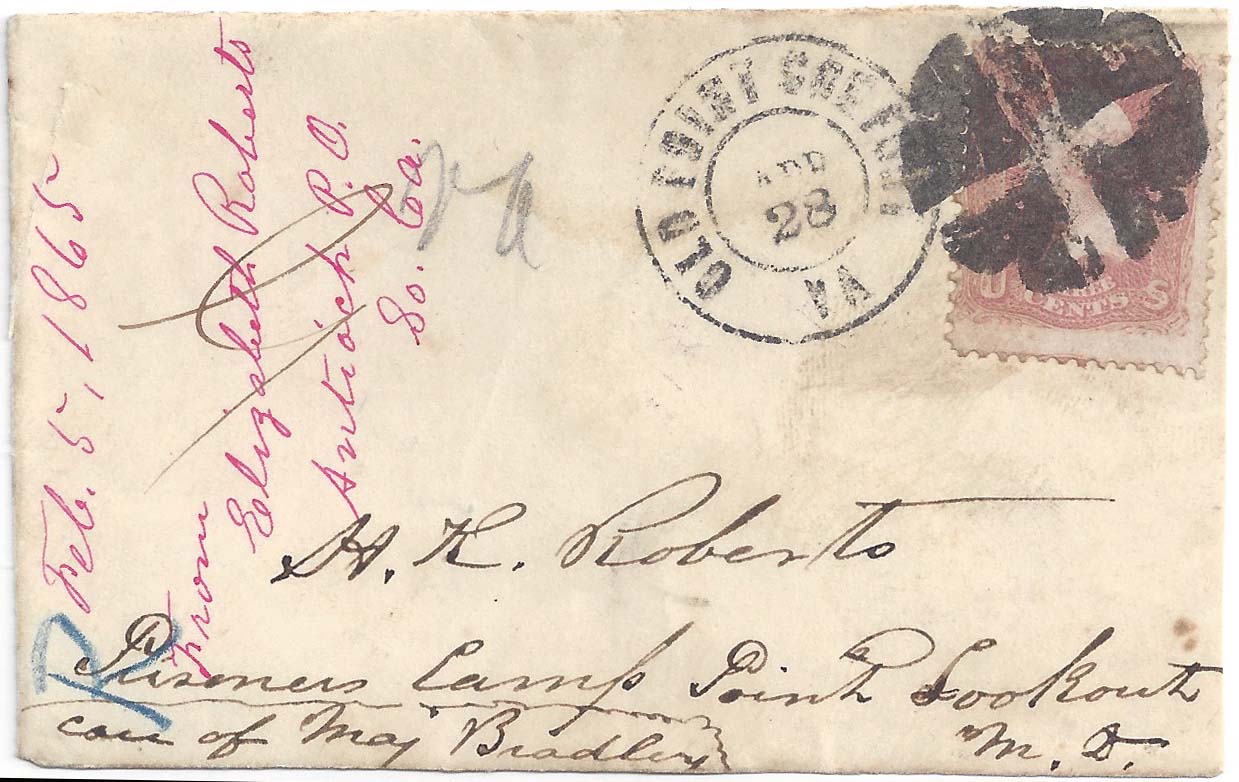 Feb. 5, 1865
From
Elizabeth Roberts
Antioch P.O.
So. Ca.
OLD POINT COMFORT
APR
28
VA
U
CENTS
S
H. K. Roberts
Prisoners Camp Point Lookout
M. D.
care of Maj Bradley
R